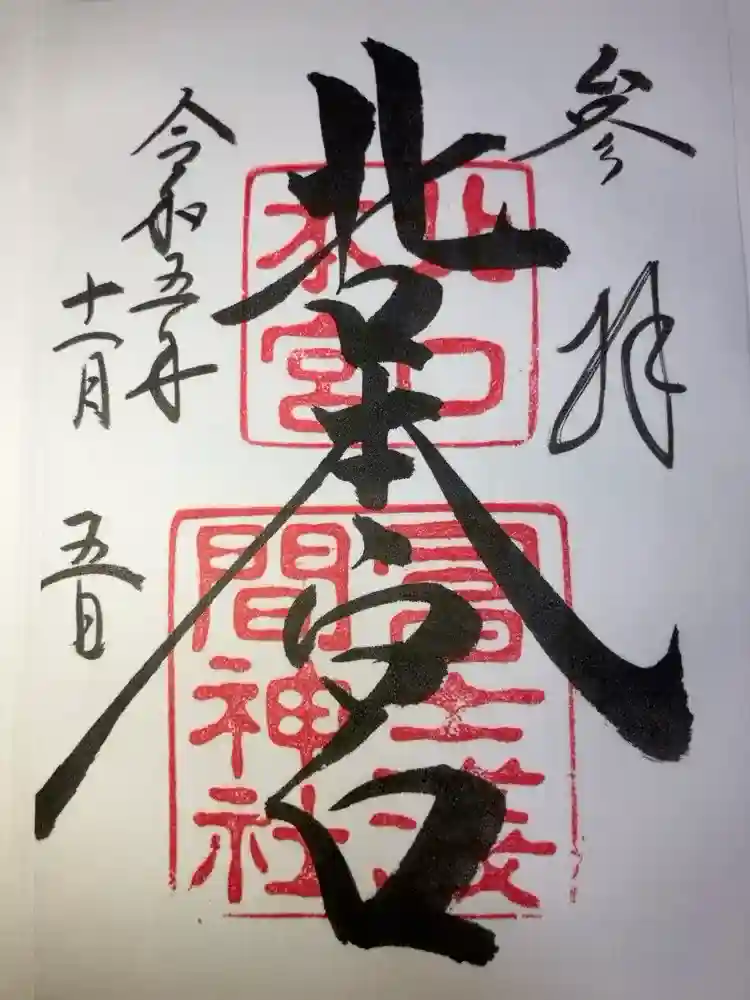 参拝
北口本宮
北口
本宮
冨士淺
間神社
令和五年
十一月五日